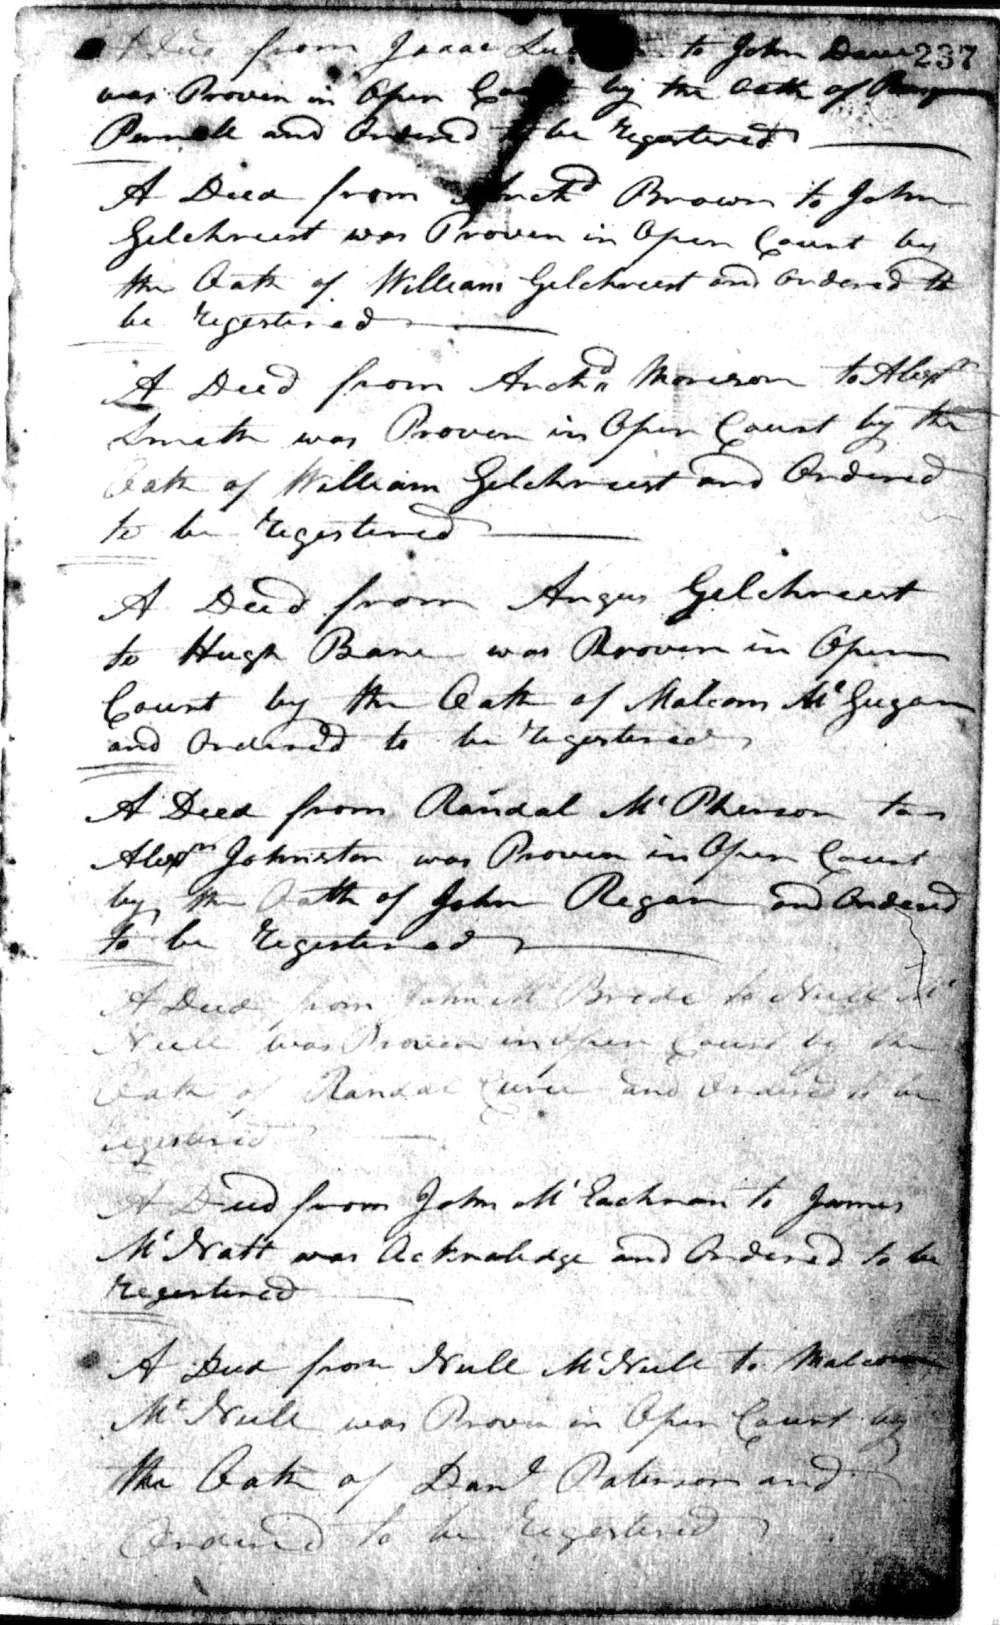 A Deed from Isaac to John 237
was Proven in Open Court by the Oath of
and Ordered to be Registered
A Deed from Archd Brown to John
Gilchreist was Proven in Open Court by
the Oath of William Gilchreist and Ordered to
be Registered
A Deed from Archd Morison to Alexr
Smith was Proven in Open Court by the
Oath of William Gilchreist and Ordered
to be Registered
A Deed from Angus Gilchreist
to Hugh Bane was Proven in Open
Court by the Oath of Malcom McGugan
and Ordered to be Registered
A Deed from Randal McPherson to
Alexr Johnston was Proven in Open Court
by the Oath of John Regan and Ordered
to be Registered
A Deed from John McBride to Neill Mc
Neill was Proven in Open Court by the
Oath of Randal Currie and Ordered to be
Registered
A Deed from John McEachran to James
McNatt was Acknoledge and Ordered to be
Registered
A Deed from Neill McNeill to Malcom
McNeill was Proven in Open Court by
the Oath of Danl Paterson and
Ordered to be Registered